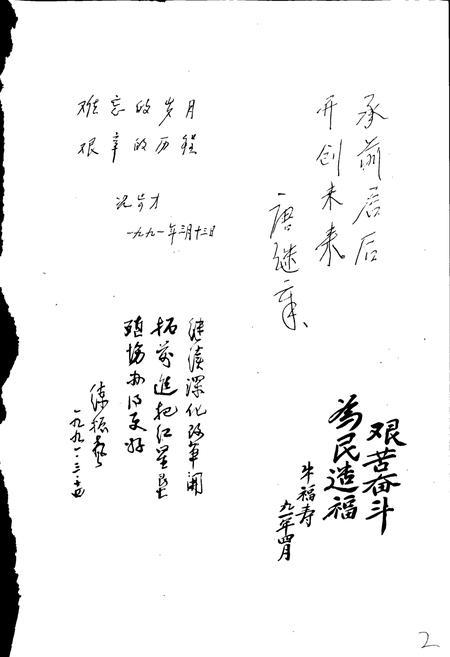 难忘的岁月
艰辛的历程
一九九一年三月十三日
承前启后
开创未来。
唐继章、
继续深化改革开
拓前进把红星农
殖场办得更好
一九九一·三·
艰苦奋斗
为民造福
牛福寿
九一年四月
2